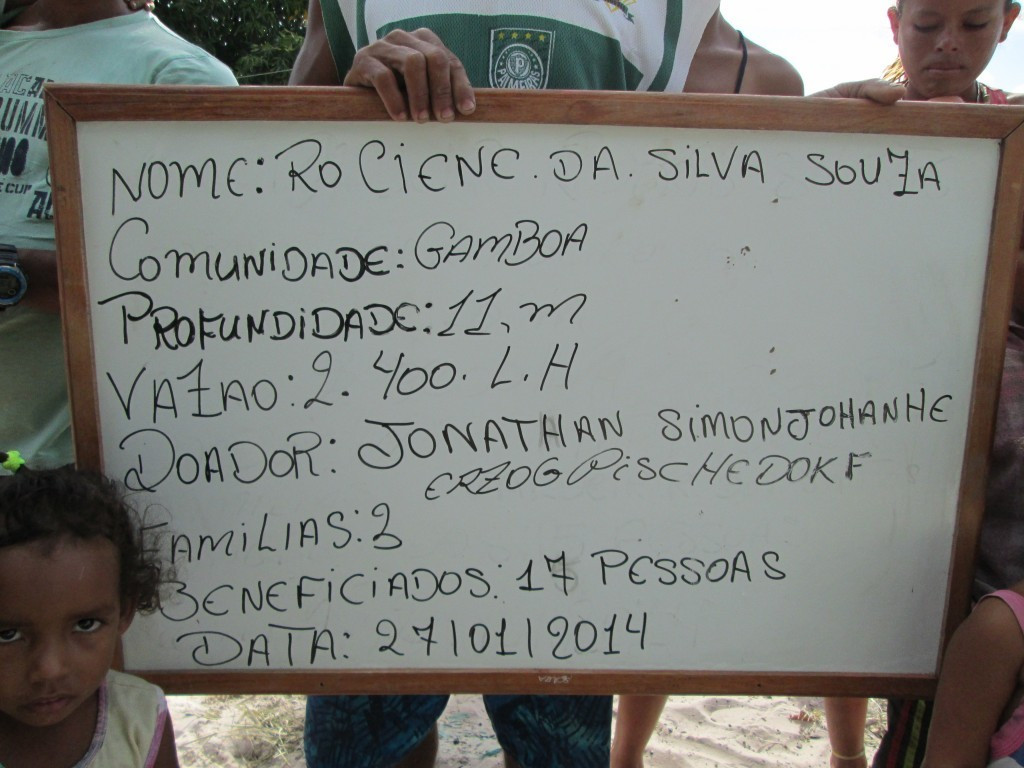 NOME: ROCIENE. DA. SILVA SOUZA
COMUNIDADE: GAMBOA
PROFUNDIDADE: 11, m
VAZAO: 2. 400. L. H
DOADOR: JONATHAN SIMONJOHANHE
ERZOGPISCHEDOKF
FAMILIAS: 3
BENEFICIADOS: 17 PESSOAS
DATA: 27/01/2014